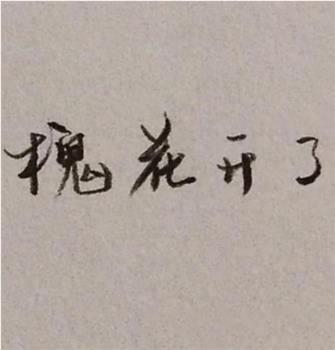 槐花开了